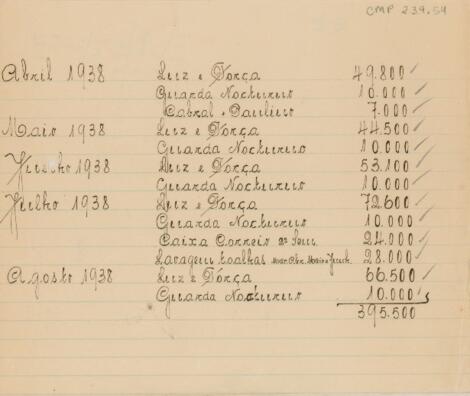 CMP 239.54
Abril 1938 Luz e Força 49.800
Guarda Nocturno 10.000
Cabral e Paulino 7.000
Maio 1938 Luz e Força 44.500
Guarda Nocturno 10.000
Junho 1938 Luz e Força 53.100
Guarda Nocturno 10.000
Julho 1938 Luz e Força 72.600
Guarda Nocturno 10.000
Caixa Correio 2º Sem. 24.000
Lavagem toalhas Mar. Abr. Maio e Junh. 28.000
Agosto 1938 Luz e Força 66.500
Guarda Nocturno 10.000
395.500